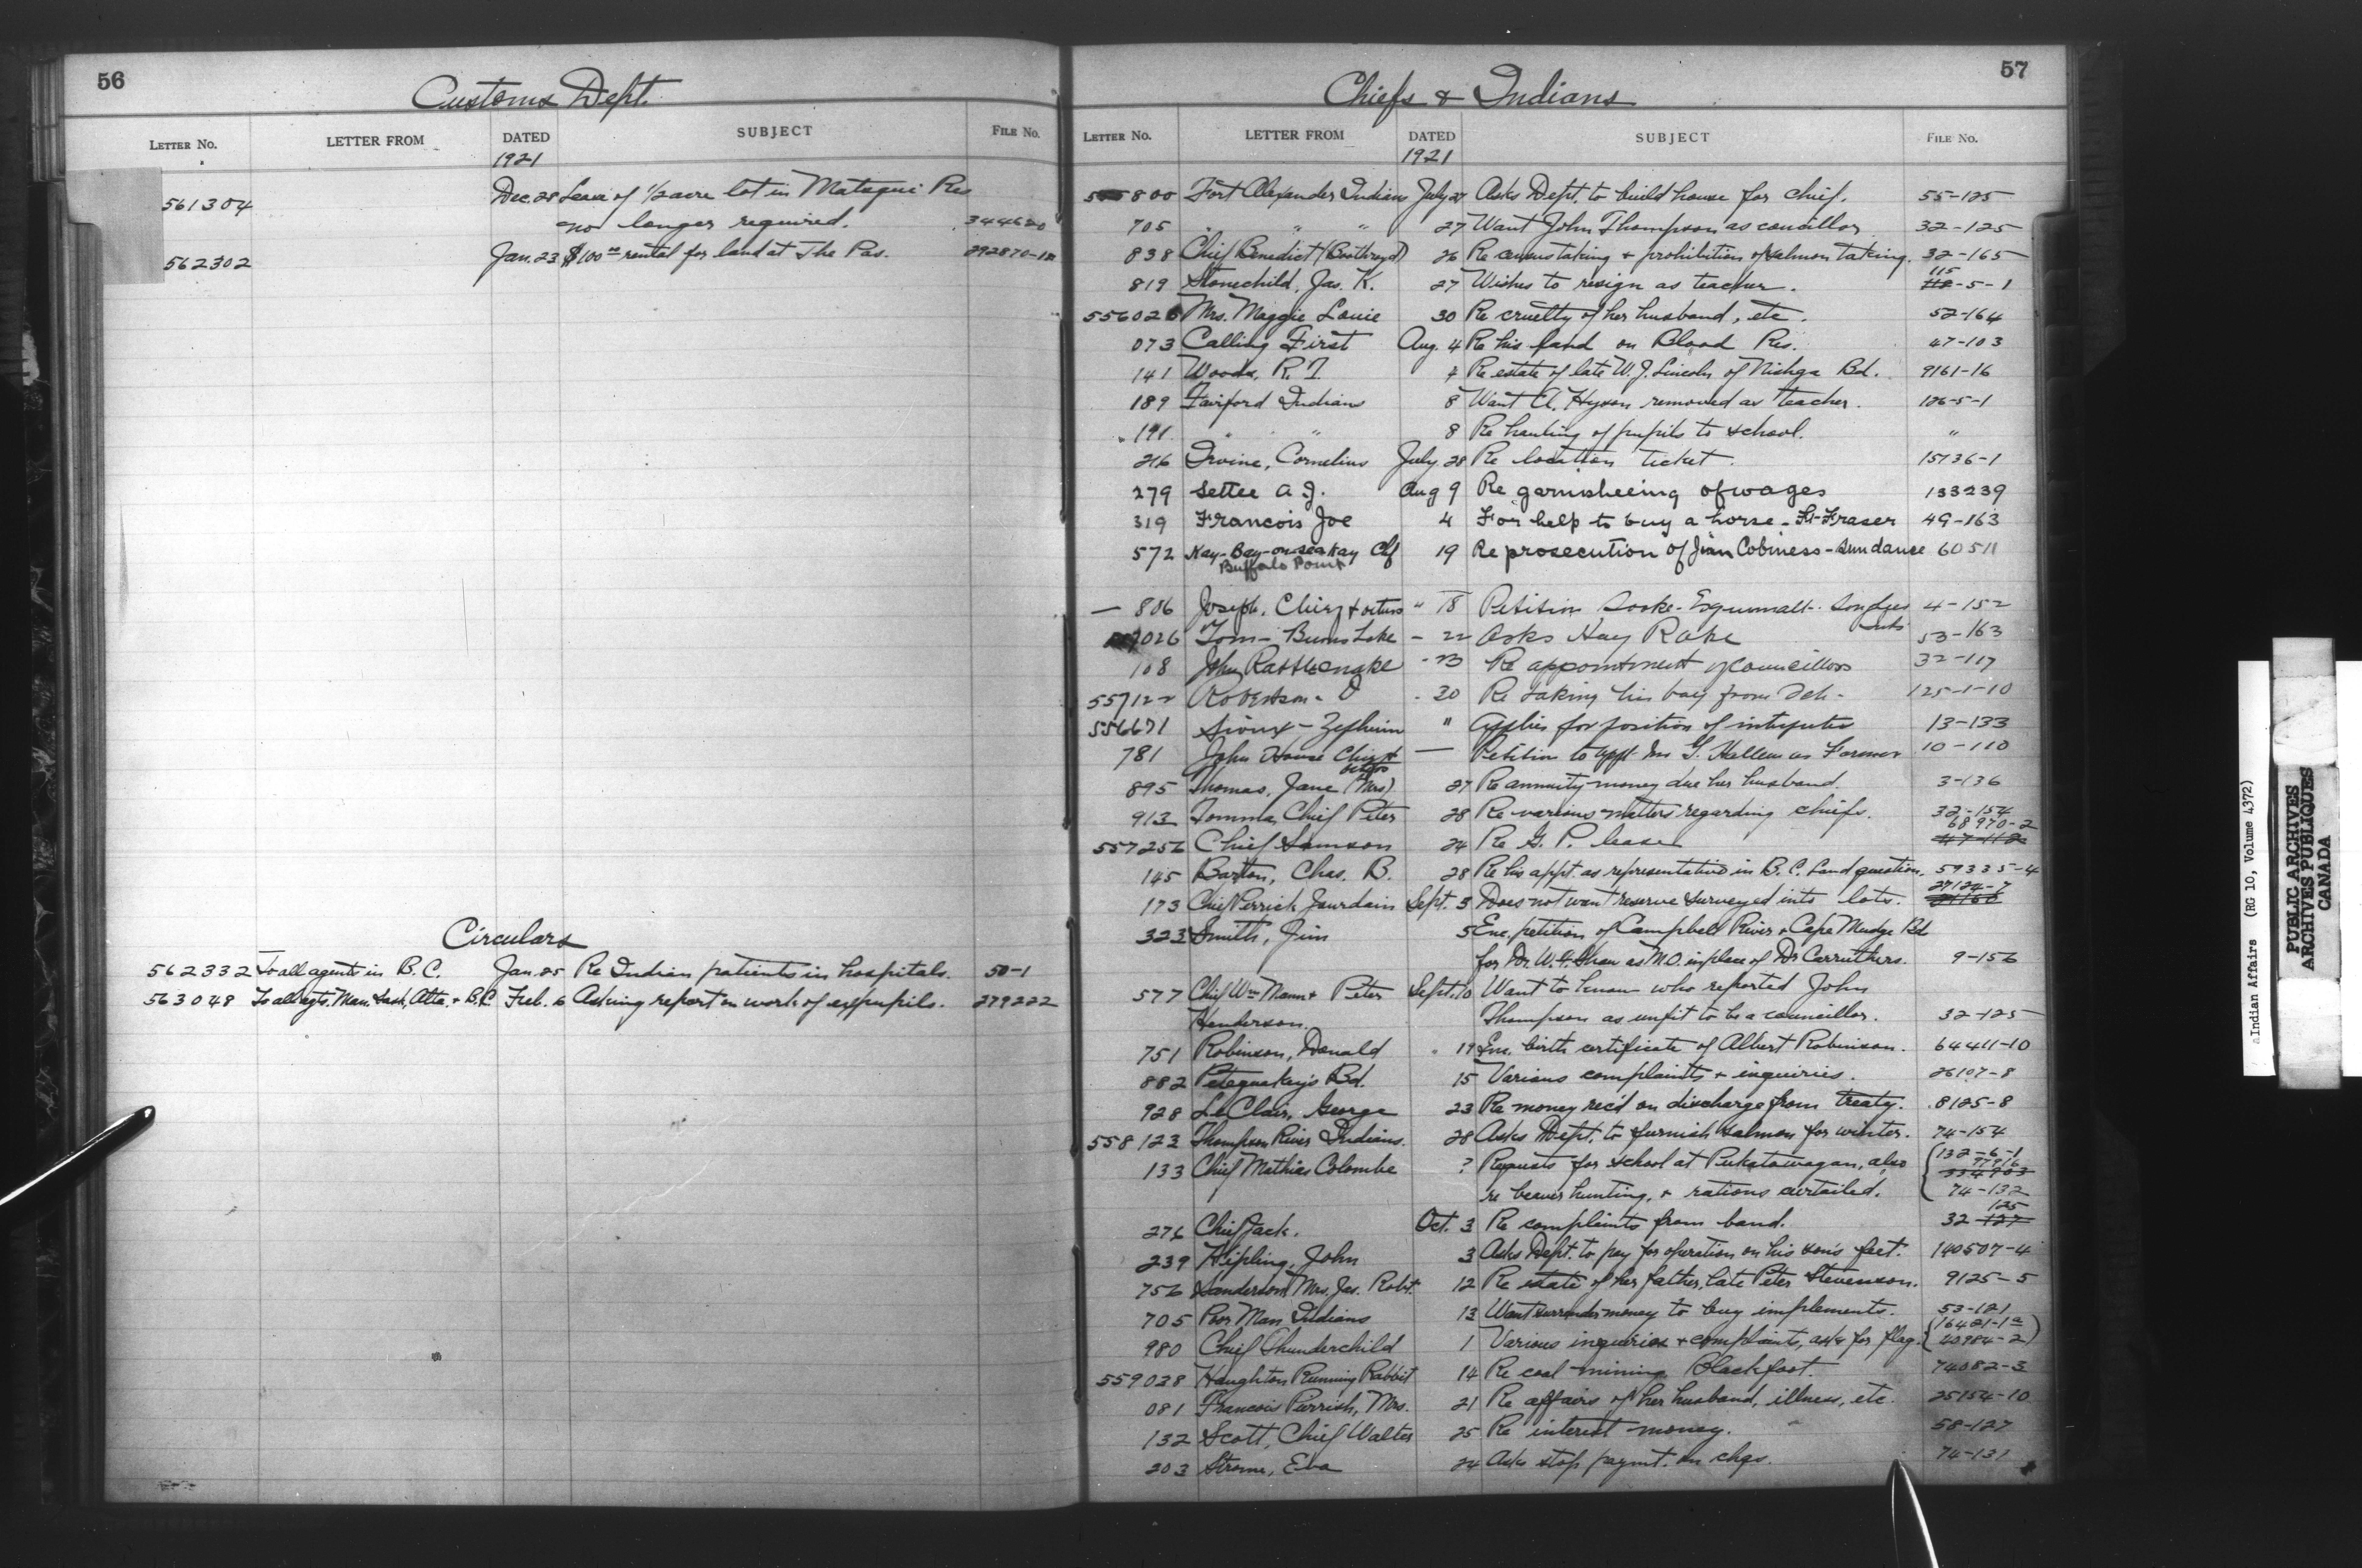 56
Customs Dept.
LETTER No. LETTER FROM DATED SUBJECT FILE No.
1921
561304 Dec. 28 Lease of 1/2 acre lot in Matsqui Res
no longer required. 344620
562302 Jan. 23 $100 rental for land at The Pas. 292870-1
Circulars
562332 To all agents in B.C. Jan. 25 Re Indian patients in hospitals. 50-1
563048 To all agts. Man. Sask, Alta. + B.C. Feb. 6 Asking report on work of expupils. 279222
57
Chiefs & Indians
LETTER No. LETTER FROM DATED SUBJECT FILE No.
1921
800 Fort Alexander Indians July 27 Asks Dept. to build house for chief. 55-125
705 " " " 27 Want John Thompson as concillor 32-125
838 Chief Benedict (Boothroyd) 26 Re census taking + prohibition of salmon taking. 32-165
819 Stonechild, Jas. K. 27 Wishes to resign as teacher. 115-5-1
556026 Mrs. Maggie Louie 30 Re cruelty of her husband, etc. 52-164
073 Calling First Aug. 4 Re his land on Blood Res. 47-103
141 Woods, R.T. 4 Re estate of late W.J. Lincoln of Nishga Bd. 9161-16
189 Fairford Indians 8 Want A. Hyson removed as teacher. 126-5-1
191 " " 8 Re hauling of pupils to school. "
216 Irvine, Cornelius July 28 Re location ticket. 15136-1
279 Settee A J. Aug 9 Re garnisheeing of wages 133239
319 Francois Joe 4 For help to buy a horse - Ft-Fraser 49-163
572 Kay-Bay-on-sea kay Chf 19 Re prosecution of Jim Cobiness - Sundance 60511
Buffalo Point
— 806 Joseph, Chief + others " 18 Petition Sooke - Esquimalt - Songhees 4-152
026 Tom - Burns Lake - 22 Asks Hay Rake 53-163
108 John Rattlesnake - 23 Re appointment of councillors 32-117
557122 Robertson - D - 30 Re taking his boy from Sch - 125-1-10
556671 Sioux - Zephirin " Applies for position of interpreter 13-133
781 John House Chief + others — Petition to appt Mr G. Hallem as Farmer 10-110
895 Thomas, Jane (Mrs) 27 Re annuity money due her husband. 3-136
913 Tomma, Chief Peter 28 Re various matters regarding chiefs. 32-154
68970-2
557256 Chief Samson 24 Re G. P. lease 47-112
145 Barton, Chas. B. 28 Re his appt. as representative in B.C. Land question. 59335-4
27124-7
173 Chief Pierrish Jourdain Sept. 3 Does not want reserve surveyed into lots.
323 Smith, Jim 5 Enc. petition of Campbell River + Cape Mudge Bd
for Dr. W.G. Shaw as M.O. in place of Dr Carruthers. 9-156
577 Chief Wm Mann + Peter Sept. 10 Want to know who reported John
Henderson. Thompson as unfit to be a councillor. 32-125
751 Robinson, Donald " 19 Enc. birth certificate of Albert Robinson. 64411-10
882 Petequakey's Bd. 15 Various complaints + inquiries. 26107-8
928 LeClair, George 23 Re money rec'd on discharge from treaty. 8125-8
558123 Thompson River Indians. 28 Asks Dept. to furnish salmon for winter. 74-154
133 Chief Mathias Colombe ? Requests for school at Pukatawagan, also 132-6-1
re beaver hunting, + rations curtailed. 74-132
125
276 Chief Jack. Oct. 3 Re complaints from band. 32-127
239 Kipling, John 3 Asks Dept. to pay for operation on his son's feet. 140507-4
756 Sanderson, Mrs. Jas. Robt. 12 Re estate of her father, late Peter Stevenson. 9125-5
705 Poor Man Indians 13 Want surrender money to buy implements. 53-121
980 Chief Thunderchild 1 Various inquiries + complaints, asks for flag. (16421-1a 40984-2)
559028 Haughton Running Rabbit 14 Re coal mining Blackfoot. 74082-3
081 Francois Pierrish, Mrs. 21 Re affairs of her husband, illness, etc. 25154-10
132 Scott, Chief Walter 25 Re interest money. 58-127
203 Strome, Eva 24 Asks stop paymt. on chqs. 74-131
Indian Affairs (RG 10, Volume 4372)
PUBLIC ARCHIVES
ARCHIVES PUBLIQUES
CANADA